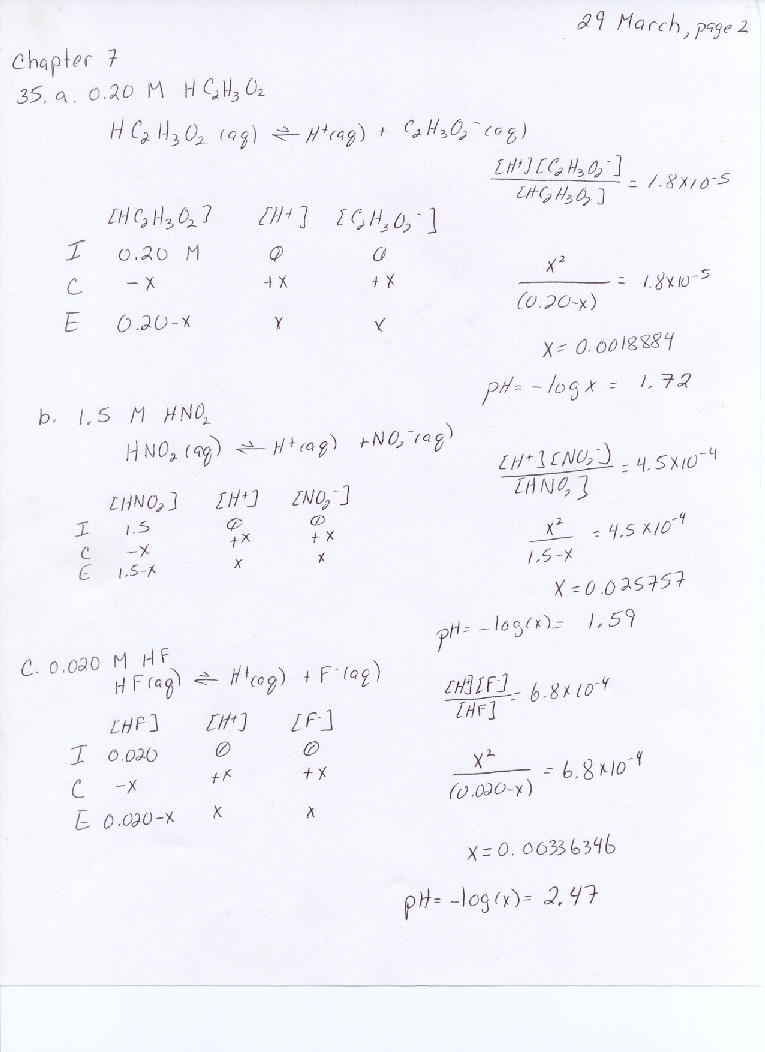 29 March, page 2
Chapter 7
35. a. 0.20 M HC₂H₃O₂
HC₂H₃O₂ (aq) ⇌ H⁺(aq) + C₂H₃O₂⁻(aq)
[H⁺][C₂H₃O₂⁻] / [HC₂H₃O₂] = 1.8×10⁻⁵
[HC₂H₃O₂] [H⁺] [C₂H₃O₂⁻]
I 0.20 M 0 0
C -x +x +x
E 0.20-x x x
x² / (0.20-x) = 1.8×10⁻⁵
x = 0.0018884
pH = -log x = 1.72
b. 1.5 M HNO₂
HNO₂(aq) ⇌ H⁺(aq) + NO₂⁻(aq)
[H⁺][NO₂⁻] / [HNO₂] = 4.5×10⁻⁴
[HNO₂] [H⁺] [NO₂⁻]
I 1.5 0 0
C -x +x +x
E 1.5-x x x
x² / 1.5-x = 4.5×10⁻⁴
x = 0.025757
pH = -log(x) = 1.59
C. 0.020 M HF
HF(aq) ⇌ H⁺(aq) + F⁻(aq)
[H⁺][F⁻] / [HF] = 6.8×10⁻⁴
[HF] [H⁺] [F⁻]
I 0.020 0 0
C -x +x +x
E 0.020-x x x
x² / (0.020-x) = 6.8×10⁻⁴
x = 0.00336346
pH = -log(x) = 2.47